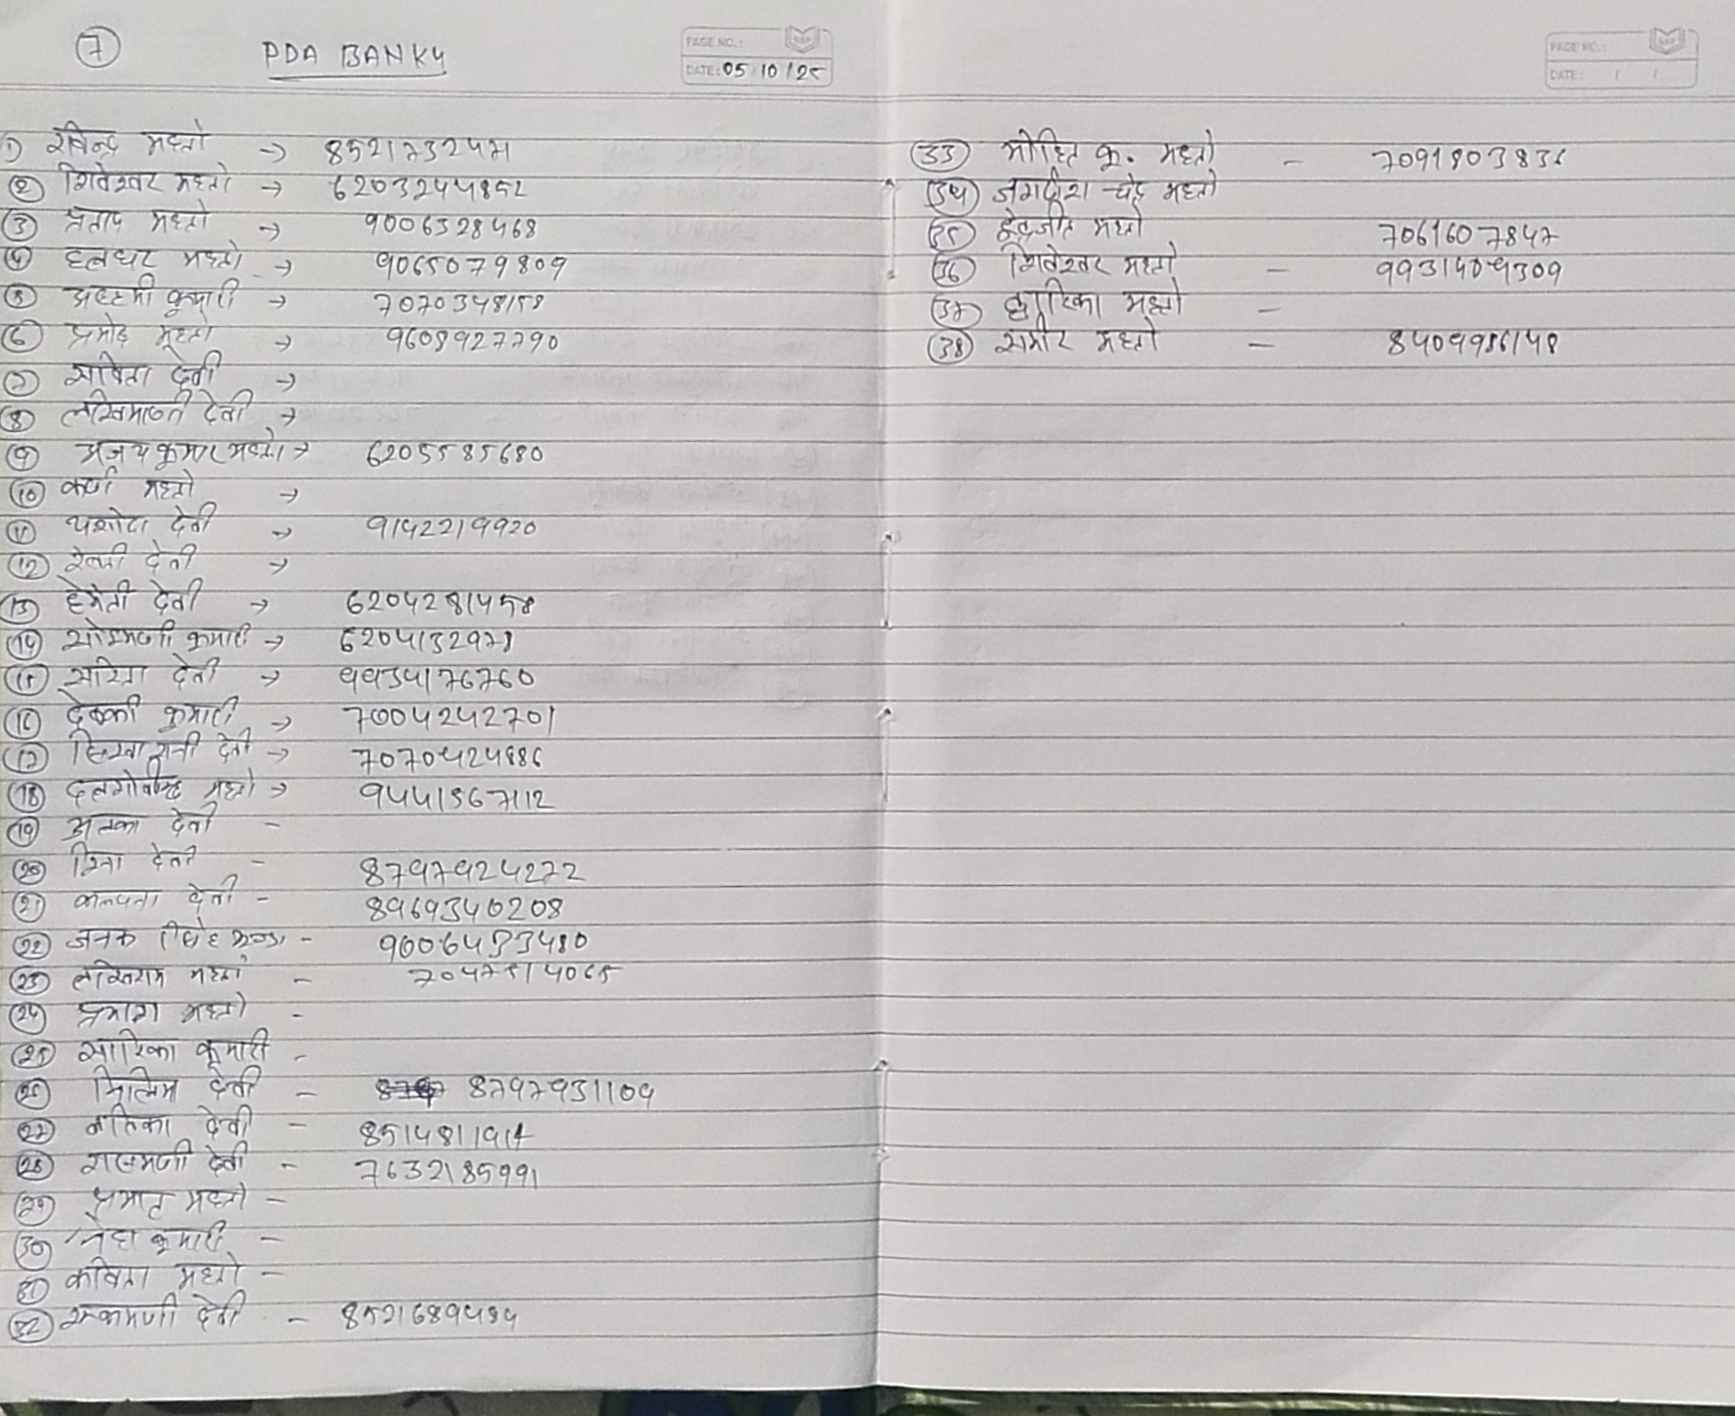 7
PDA BANKU
PAGE NO.:
DATE: 05/10/25
① रविन्द्र महतो → 8521732471
② शिवेश्वर महतो → 6203244852
③ प्रताप महतो → 9006328468
④ हलधर महतो → 9065079809
⑤ कुमारी → 7070348158
⑥ प्रमोद महतो → 9608927790
⑦ सबिता देवी →
⑧ लखिमणी देवी →
⑨ अजय कुमार महतो → 6205585680
⑩ कर्ण महतो →
⑪ यशोदा देवी → 9142219920
⑫ देवी →
⑬ हेमंती देवी → 6204281458
⑭ कुमारी → 6204132978
⑮ सरिता देवी → 9934176760
⑯ देवकी कुमारी → 7004242701
⑰ देवी → 7070424886
⑱ दलगोविन्द महतो → 9441567112
⑲ अलका देवी -
⑳ रिना देवी - 8797924272
㉑ कल्पना देवी - 8969340208
㉒ जनक सिंह मुण्डा -
㉓ महतो - 7047514065
㉔ प्रकाश महतो -
㉕ सारिका कुमारी -
㉖ देवी - 8797931109
㉗ देवी - 8514811914
㉘ रासमणी देवी - 7632185991
㉙ प्रभात महतो -
㉚ नेहा कुमारी -
㉛ कविता महतो -
㉜ देवी - 8521689484
PAGE NO.:
DATE: / /
㉝ मोहित कु. महतो - 7091803836
㉞ जगदीश चंद्र महतो
㉟ इंद्रजीत महतो 7061607847
㊱ शिवेश्वर महतो - 9931409309
㊲ द्वारिका महतो -
㊳ समीर महतो - 8409986148